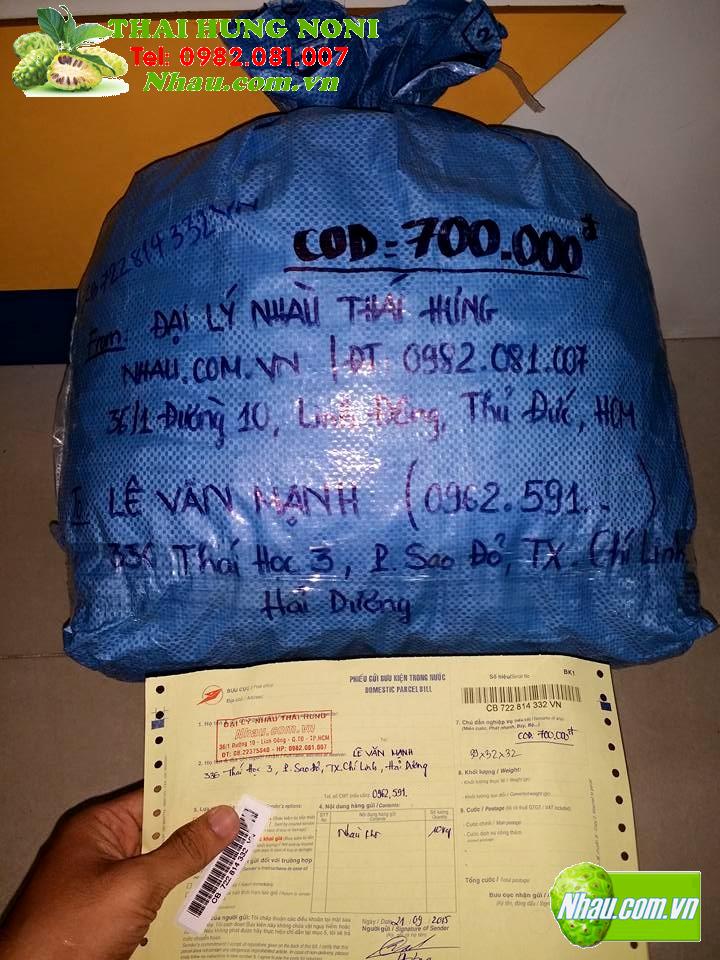 THAI HUNG NONI
Tel: 0982.081.007
Nhau.com.vn
722 814 332 VN
COD = 700.000đ
From: ĐẠI LÝ NHÀU THÁI HƯNG
NHAU.COM.VN / ĐT: 0982.081.007
36/1 Đường 10, Linh Đông, Thủ Đức, HCM
LÊ VĂN MẠNH (0962.591..)
336 Thái Học 3, P. Sao Đỏ, TX. Chí Linh
Hải Dương
BƯU CỤC / Post office
Địa chỉ / Address
PHIẾU GỬI BƯU KIỆN TRONG NƯỚC
DOMESTIC PARCEL BILL
Số hiệu/Serial No
BK1
CB 722 814 332 VN
ĐẠI LÝ NHÀU THÁI HƯNG
Nhau.com.vn
36/1 Đường 10 - Linh Đông - Q.TĐ - TP.HCM
ĐT: 08.22375340 - HP: 0982.081.007
LÊ VĂN MẠNH
336 Thái Học 3, P. Sao Đỏ, TX. Chí Linh, Hải Dương
0962.591.
7. Chú dẫn nghiệp vụ
COD: 700.000đ
32x32
8. Khối lượng / Weight:
4. Nội dung hàng gửi / Contents:
STT
No
Nội dung hàng gửi
Contents
Số lượng
Quantity
Nhàu khô
10kg
9. Cước / Postage
Cước chính / Main postage
Cước dịch vụ cộng thêm
Tổng cước / Total postage
Bưu cục nhận gửi
CB 722 814 332 VN
Ngày / Date 21.09.2015
Người gửi / Signature of Sender
Nhau.com.vn